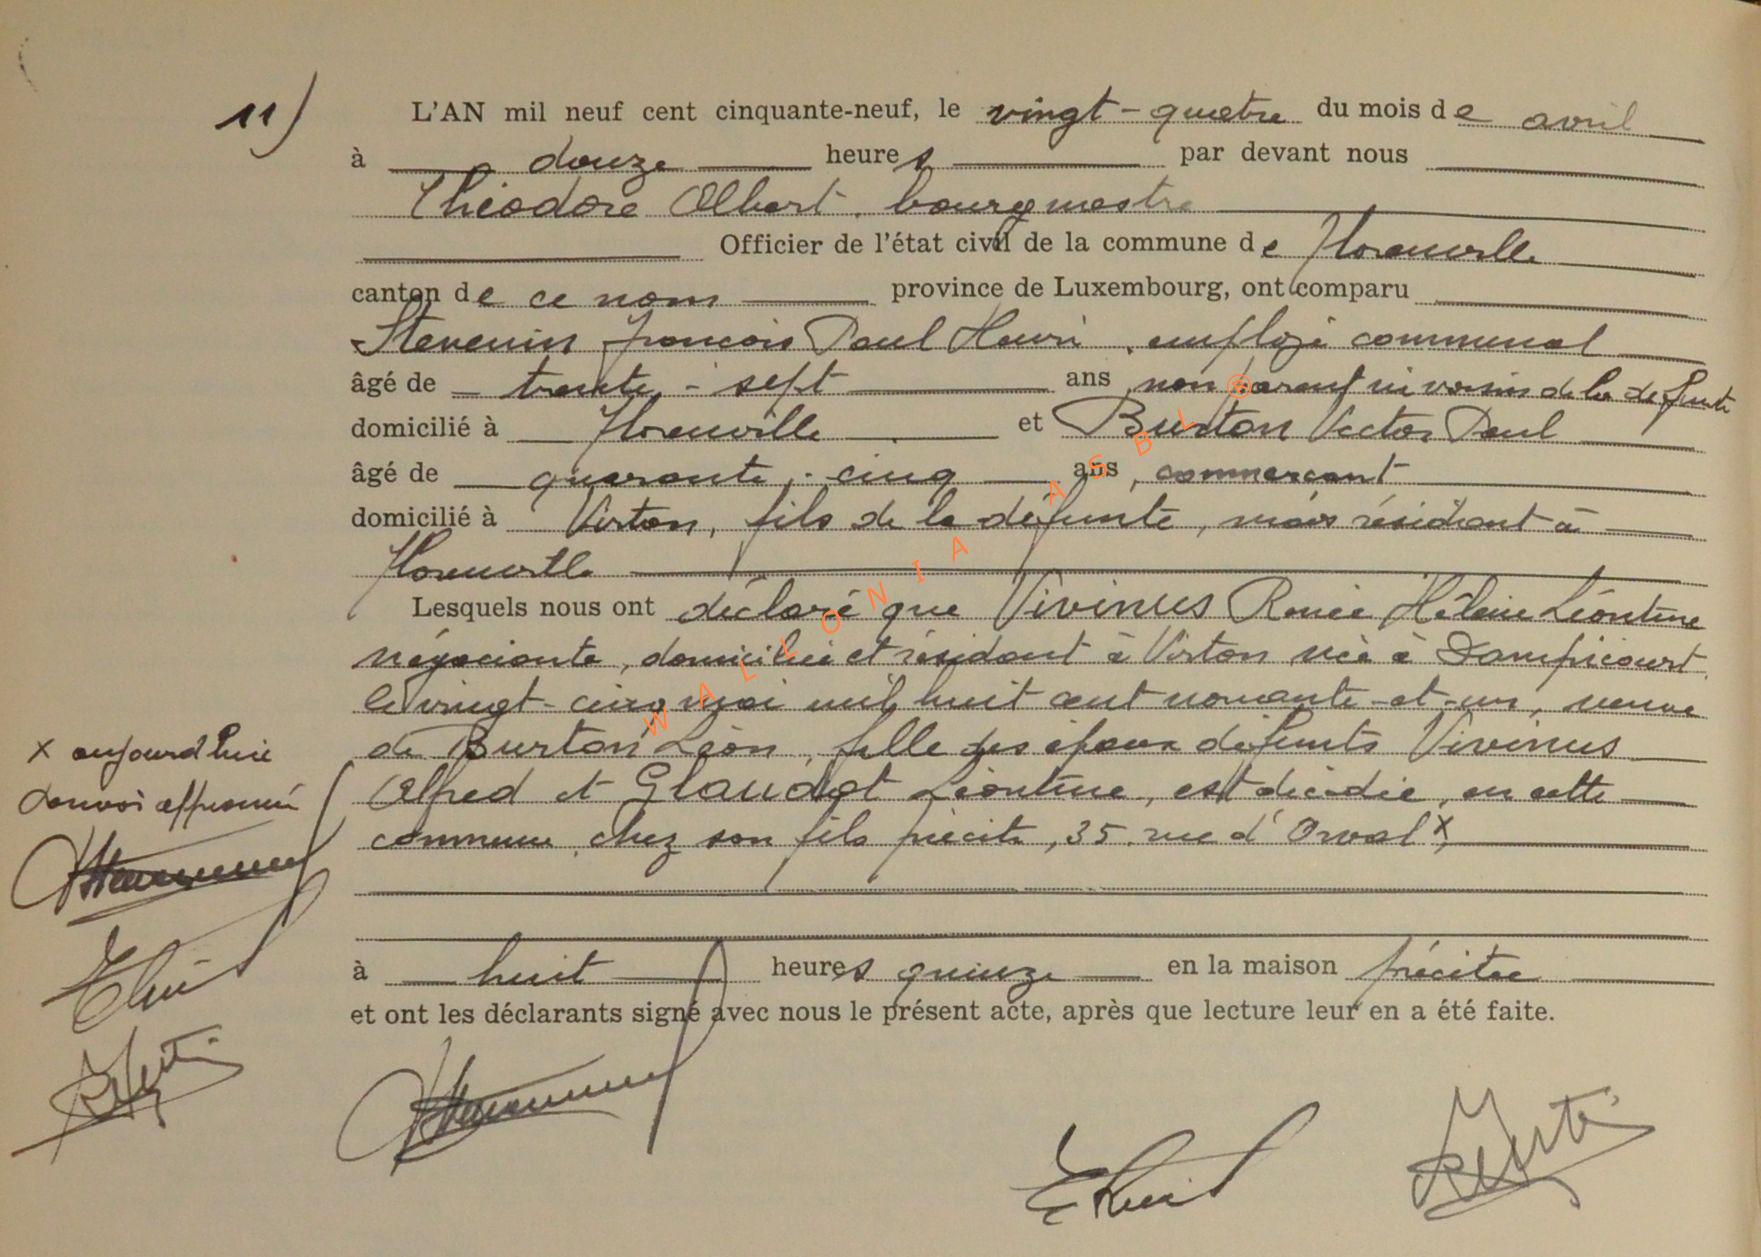 11)
L'AN mil neuf cent cinquante-neuf, le vingt-quatre du mois de avril
à douze heures par devant nous
Théodore Albert, bourgmestre
Officier de l'état civil de la commune de Florenville
canton de ce nom province de Luxembourg, ont comparu
Stevenin François Paul Henri, employé communal
âgé de trente-sept ans, non parent ni voisin de la défunte
domicilié à Florenville et Burton Victor Paul
âgé de quarante-cinq ans, commerçant
domicilié à Virton, fils de la défunte, mais résidant à
Florenville
Lesquels nous ont déclaré que Vivinus Renée Hélène Léontine
négociante, domiciliée et résidant à Virton née à Dampicourt
le vingt-cinq mai mil huit cent nonante-et-un, veuve
de Burton Léon, fille des époux défunts Vivinus
Alfred et Glaudot Léontine, est décédée, en cette
commune, chez son fils précité, 35, rue d'Orval x,
x aujourd'hui
renvoi approuvé
à huit heures quinze en la maison précitée
et ont les déclarants signé avec nous le présent acte, après que lecture leur en a été faite.
WALLONIA ASBL ®